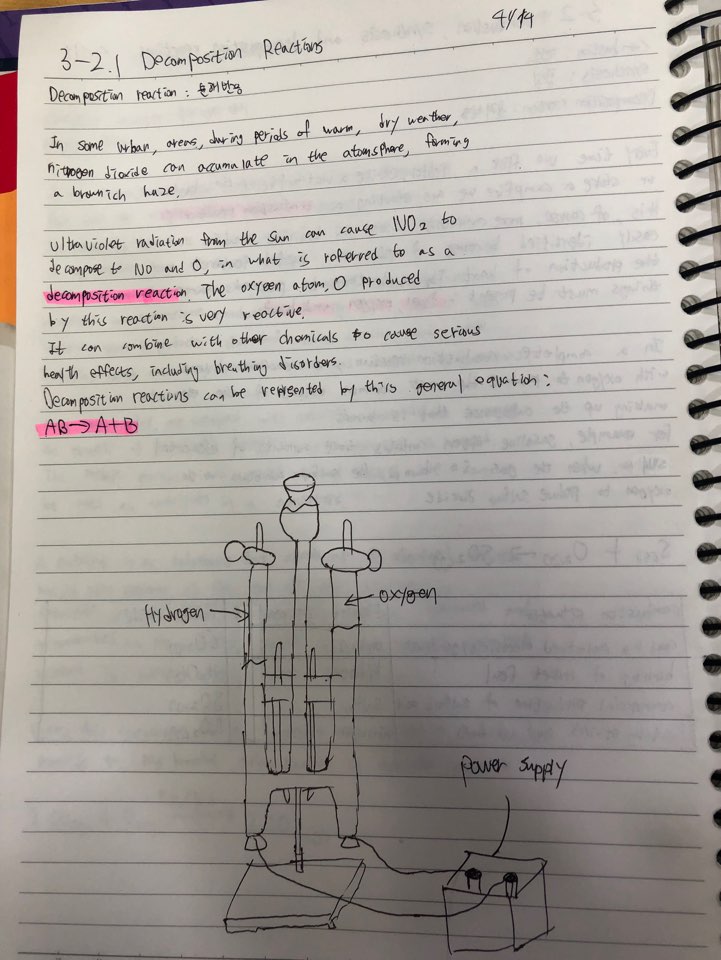 4/14
3-2.1 Decomposition Reactions
Decomposition reaction : 분해반응
In some urban, areas, during periods of warm, dry weather,
nitrogen dioxide can accumulate in the atomsphere, forming
a brownich haze.
ultraviolet radiation from the sun can cause NO₂ to
decompose to NO and O, in what is referred to as a
decomposition reaction. The oxygen atom, O produced
by this reaction is very reactive.
It can combine with other chemicals to cause serious
health effects, including breathing disorders.
Decomposition reactions can be represented by this general equation :
AB→A+B
Hydrogen
oxygen
power supply